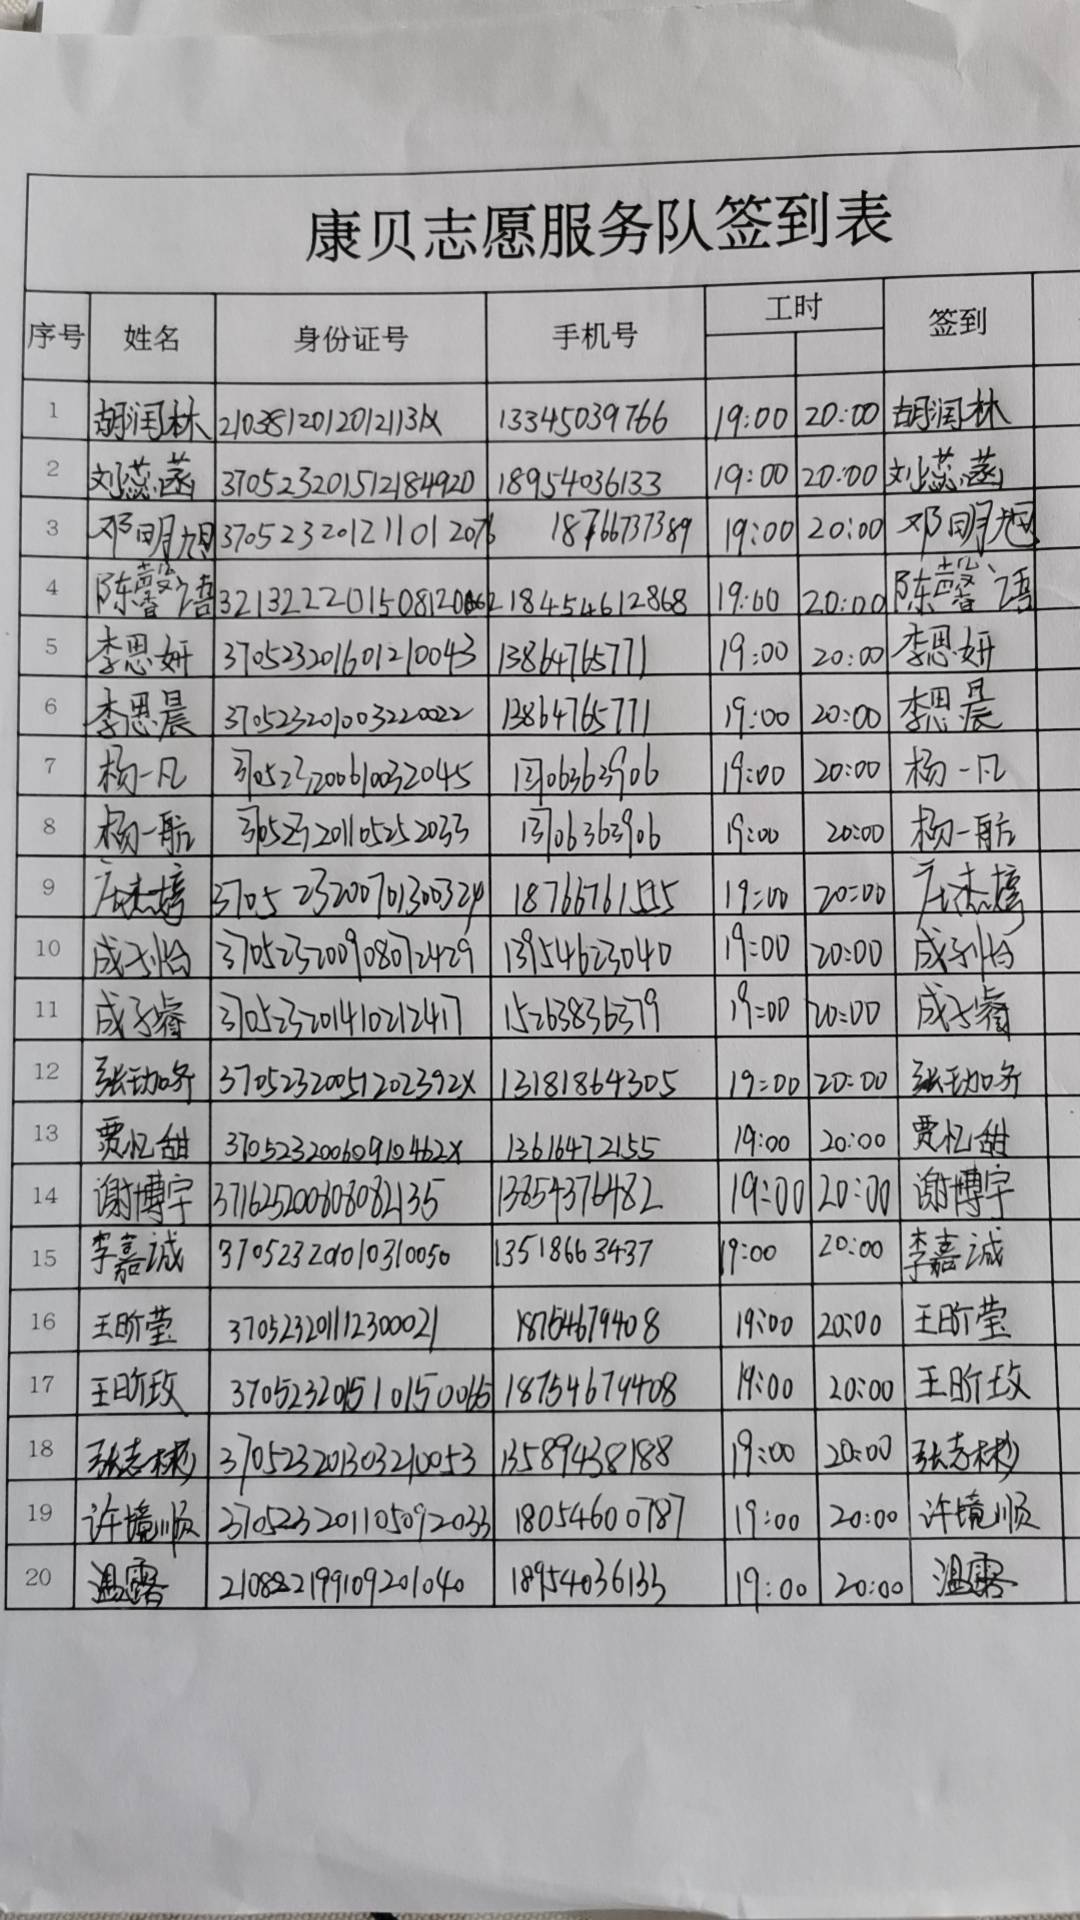 康贝志愿服务队签到表
序号 姓名 身份证号 手机号 工时 签到
1 胡润林 21038120120121131X 13345039766 19:00 20:00 胡润林
2 刘蕊菡 370523201512184920 18954036133 19:00 20:00 刘蕊菡
3 邓明旭 370523201211012076 18766737389 19:00 20:00 邓明旭
4 陈馨语 18454612868 19:00 20:00 陈馨语
5 李思妍 370523201601210043 13864765771 19:00 20:00 李思妍
6 李思晨 370523201003220022 13864765771 19:00 20:00 李思晨
7 杨一凡 370523200610032045 13706363906 19:00 20:00 杨一凡
8 杨一航 370523201105252033 13706363906 19:00 20:00 杨一航
9 19:00 20:00
10 成子怡 370523200908072429 13954623040 19:00 20:00 成子怡
11 成子睿 370523201410212417 15263836379 19:00 20:00 成子睿
12 37052320051202392X 13181864305 19:00 20:00
13 贾忆甜 37052320060910462X 13616472155 19:00 20:00 贾忆甜
14 谢博宇 371625200808082135 13854376482 19:00 20:00 谢博宇
15 李嘉诚 370523201010310050 13518663437 19:00 20:00 李嘉诚
16 王昕莹 370523201112300021 18754679408 19:00 20:00 王昕莹
17 王昕玫 370523201510150065 18754679408 19:00 20:00 王昕玫
18 张志彬 370523201303210053 13589438188 19:00 20:00 张志彬
19 许境顺 370523201105092033 18054600787 19:00 20:00 许境顺
20 温露 210882199109201040 18954036133 19:00 20:00 温露